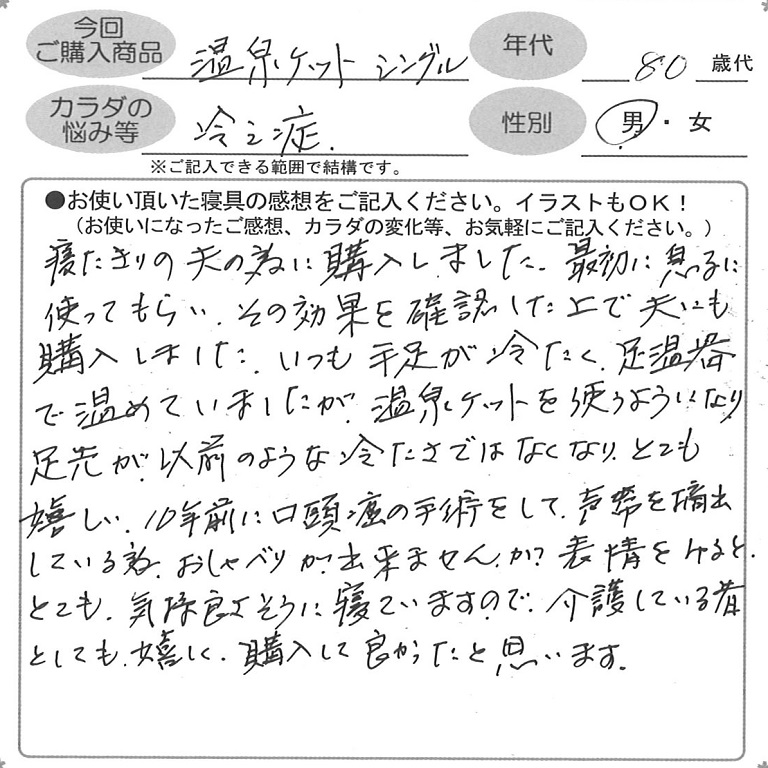 今回
ご購入商品
温泉ケット シングル
年代
80 歳代
カラダの
悩み等
冷え症.
性別
男・女
※ご記入できる範囲で結構です。
●お使い頂いた寝具の感想をご記入ください。イラストもOK!
(お使いになったご感想、カラダの変化等、お気軽にご記入ください。)
寝たきりの夫の為に購入しました. 最初に息子に
使ってもらい. その効果を確認した上で夫にも
購入しました. いつも手足が冷たく. 足温器
で温めていましたが. 温泉ケットを使うようになり
足先が以前のような冷たさではなくなり. とても
嬉しい. 10年前に口頭癌の手術をして. 声帯を摘出
している為. おしゃべりが出来ませんが? 表情をみると.
とても. 気持良さそうに寝ていますので. 介護している者
としても. 嬉しく. 購入して良かったと思います.